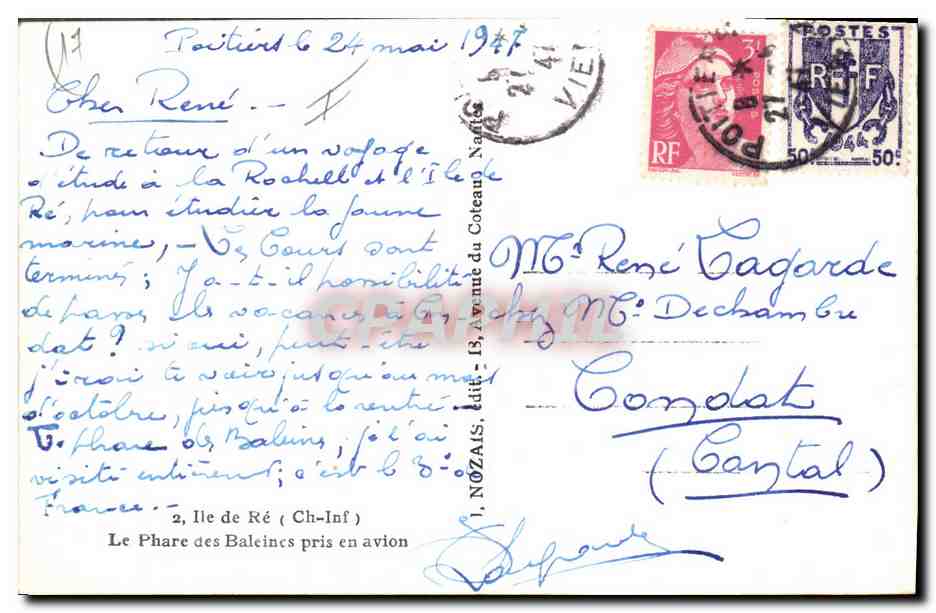 (17
Poitiers le 24 mai 1947
Cher René. -
De retour d'un voyage
d'étude à la Rochell et l'Ile de
Ré, pour étudier la faune
marine, - Les Cours sont
terminés; Y a-t-il possibilité
de passer les vacances à Con-
dat? si oui, peut être
j'irai te voir jusqu'au mois
d'octobre, jusqu'à la rentrée!
Le phare des Baleines, je l'ai
visité entièrement; c'est le 3° de
France. -
2, Ile de Ré ( Ch-Inf )
Le Phare des Baleines pris en avion
J. NOZAIS, édit. - 13, Avenue du Coteau, Nantes
POITIERS
21
41
VIE
3F
POSTES
RF
POITIERS
8
21
41
VIE
POSTES
RF
1944
50c 50c
Mr René Lagarde
chez Mr Dechambre
Condat
(Cantal)
CPAPHIL